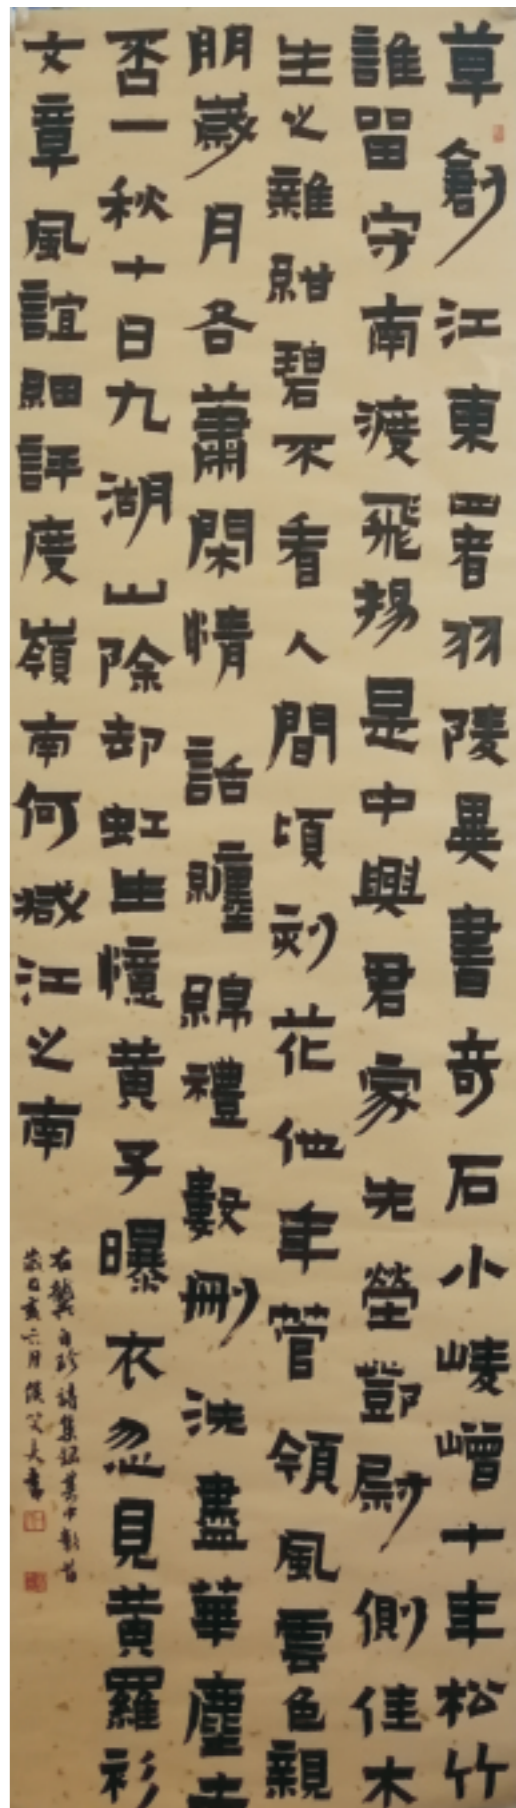 草創江東署羽陵異書奇石小崚嶒十年松竹
誰留守南渡飛揚是中興君家先塋鄧尉側佳木
生之雜紺碧不看人間頃刻花他年管領風雲色親
朋歲月各蕭閑情話纏綿禮數刪洗盡華塵土
否一秋十日九湖山除却虹生憶黃子曝衣忽見黃羅衫
文章風誼細評度嶺南何減江之南
右龔自珍詩集錄其中數首
歲己亥六月